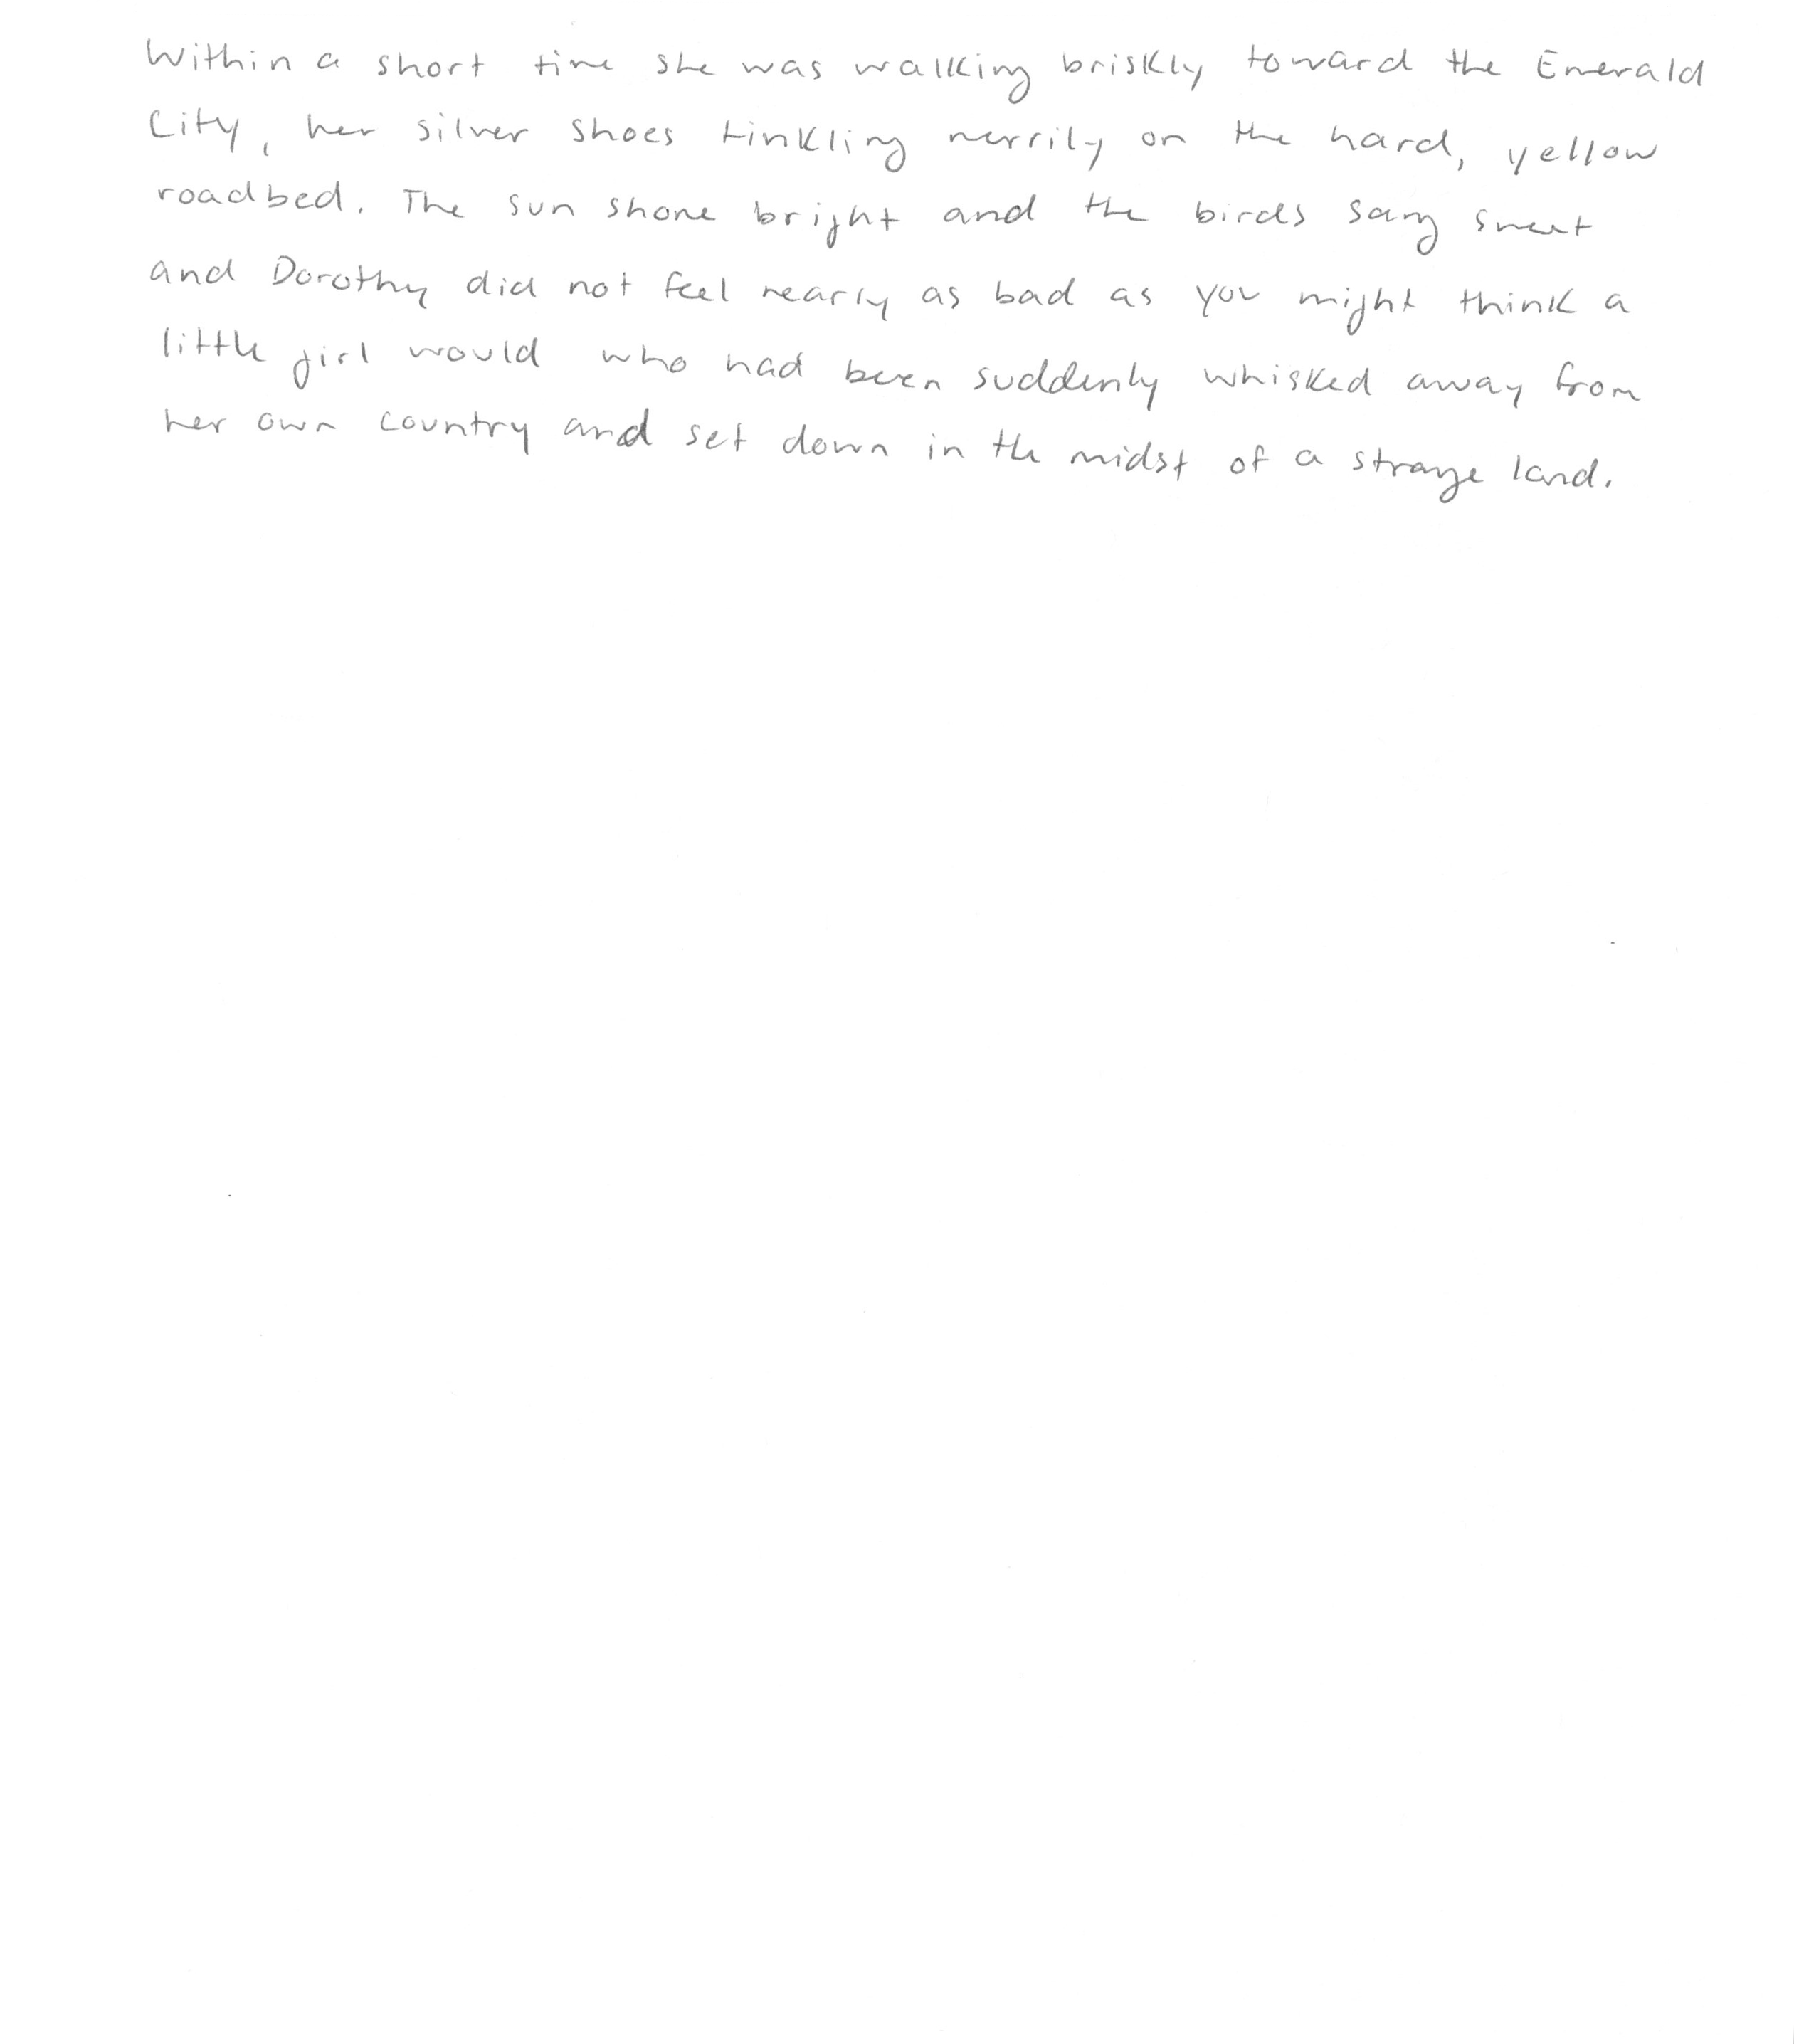 Within a short time she was walking briskly toward the Emerald
City, her silver shoes tinkling merrily on the hard, yellow
roadbed. The sun shone bright and the birds sang sweet
and Dorothy did not feel nearly as bad as you might think a
little girl would who had been suddenly whisked away from
her own country and set down in the midst of a strange land.